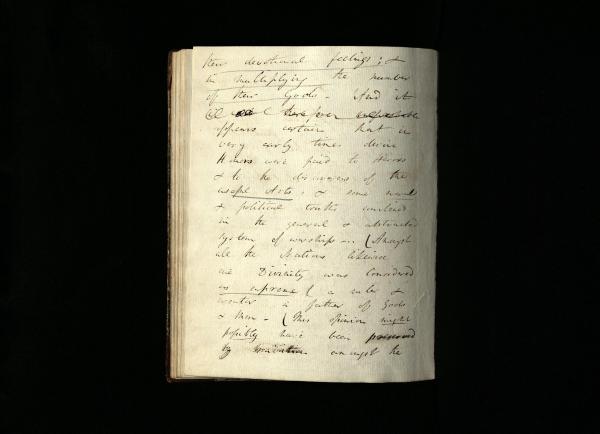 their devotional feelings; &
in multiplying the number
of their Gods - And it
appears certain that in
very early times divine
Honors were paid to Heroes
& to the discoverers of the
useful Arts. & some moral
& political truths
in the general & abstracted
system of worship - (Amongst
all the Nations likewise
one Divinity was considered
as supreme ( a ruler &
a father of Gods
& Men - (This opinion might
possibly have been
by amongst the